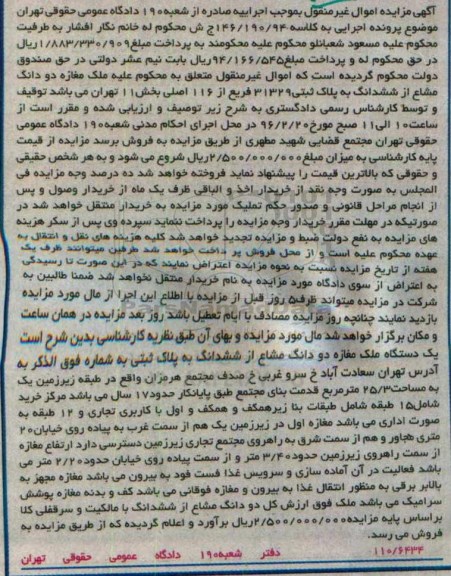 آگهی مزایده اموال غیرمنقول بموجب اجراییه صادره از شعبه۱۹۰ دادگاه عمومی حقوقی تهران
موضوع پرونده اجرایی به کلاسه ۱۴۶/۱۹۰/۹۴ج ش محکوم له خانم نگار افشار به طرفیت
محکوم علیه مسعود شعبانلو محکوم علیه محکومند به پرداخت مبلغ۱/۸۸۳/۳۳۰/۹۰۹ریال
در حق محکوم له و پرداخت مبلغ۹۴/۱۶۶/۵۴۵ریال بابت نیم عشر دولتی در حق صندوق
دولت محکوم گردیده است که اموال غیرمنقول متعلق به محکوم علیه ملک مغازه دو دانگ
مشاع از ششدانگ به پلاک ثبتی۳۱۳۲۹ فریع از ۱۱۶ اصلی بخش۱۱ تهران می باشد توقیف
و توسط کارشناس رسمی دادگستری به شرح زیر توصیف و ارزیابی شده و مقرر است از
ساعت۱۰ الی۱۱ صبح مورخ۹۶/۲/۲۰ در محل اجرای احکام مدنی شعبه۱۹۰ دادگاه عمومی
حقوقی تهران مجتمع قضایی شهید مطهری از طریق مزایده به فروش برسد مزایده از قیمت
پایه کارشناسی به میزان مبلغ۲/۵۰۰/۰۰۰/۰۰۰ریال شروع می شود و به هر شخص حقیقی
و حقوقی که بالاترین قیمت را پیشنهاد نماید فروخته خواهد شد ده درصد وجه مزایده فی
المجلس به صورت وجه نقد از خریدار اخذ و الباقی ظرف یک ماه از خریدار وصول و پس
از انجام مراحل قانونی و صدور حکم تملیک مورد مزایده به خریدار منتقل خواهد شد در
صورتیکه در مهلت مقرر خریدار وجه مزایده را پرداخت ننماید سپرده وی پس از سکر هزینه
های مزایده به نفع دولت ضبط و مزایده تجدید خواهد شد کلیه هزینه های نقل و انتقال به
عهده محکوم علیه است و از محل فروش پر داخت خواهد شد طرفین میتوانند ظرف یک
هفته از تاریخ مزایده نسبت به نحوه مزایده اعتراض نمایند که در این صورت تا رسیدگی
به اعتراض از سوی دادگاه مورد مزایده به نام خریدار منتقل نخواهد شد ضمنا طالبین به
شرکت در مزایده میتواند ظرف۵ روز قبل از مزایده با اطلاع این اجرا از مال مورد مزایده
بازدید نمایند چنانچه روز مزایده مصادف با ایام تعطیل باشد روز بعد مزایده در همان ساعت
و مکان برگزار خواهد شد مال مورد مزایده و بهای آن طبق نظریه کارشناسی بدین شرح است
یک دستگاه ملک مغازه دو دانگ مشاع از ششدانگ به پلاک ثبتی به شماره فوق الذکر به
آدرس تهران سعادت آباد خ سرو غربی خ صدف مجتمع هرمزان واقع در طبقه زیرزمین یک
به مساحت۲۵/۳ مترمربع قدمت بنای مجتمع طبق پایانکار حدود۱۷ سال می باشد مرکز خرید
شامل۱۵ طبقه شامل طبقات بنا زیرهمکف و همکف و اول با کاربری تجاری و ۱۲ طبقه به
صورت اداری می باشد مغازه اول در زیرزمین یک هم از سمت غرب به پیاده روی خیابان۲۰
متری مجاور و هم از سمت شرق به راهروی مجتمع تجاری زیرزمین دسترسی دارد ارتفاع مغازه
از سمت راهروی زیرزمین حدود۳/۴۰ متر و از سمت پیاده روی خیابان حدود۲/۲۰ متر می
باشد فعالیت در آن آماده سازی و سرویس غذا فست فود به بیرون می باشد مغازه مجهز به
بالابر برقی به منظور انتقال غذا به بیرون و مغازه فوقانی می باشد کف و بدنه مغازه پوشش
سرامیک می باشد ملک فوق ارزش کل دو دانگ مشاع از ششدانگ با مالکیت و سرقفلی کلا
بر اساس پایه مزایده۲/۵۰۰/۰۰۰/۰۰۰ریال برآورد و اعلام گردیده که از طریق مزایده به
فروش می رسد.
۱۱۰/۶۴۳۴ دفتر شعبه۱۹۰ دادگاه عمومی حقوقی تهران